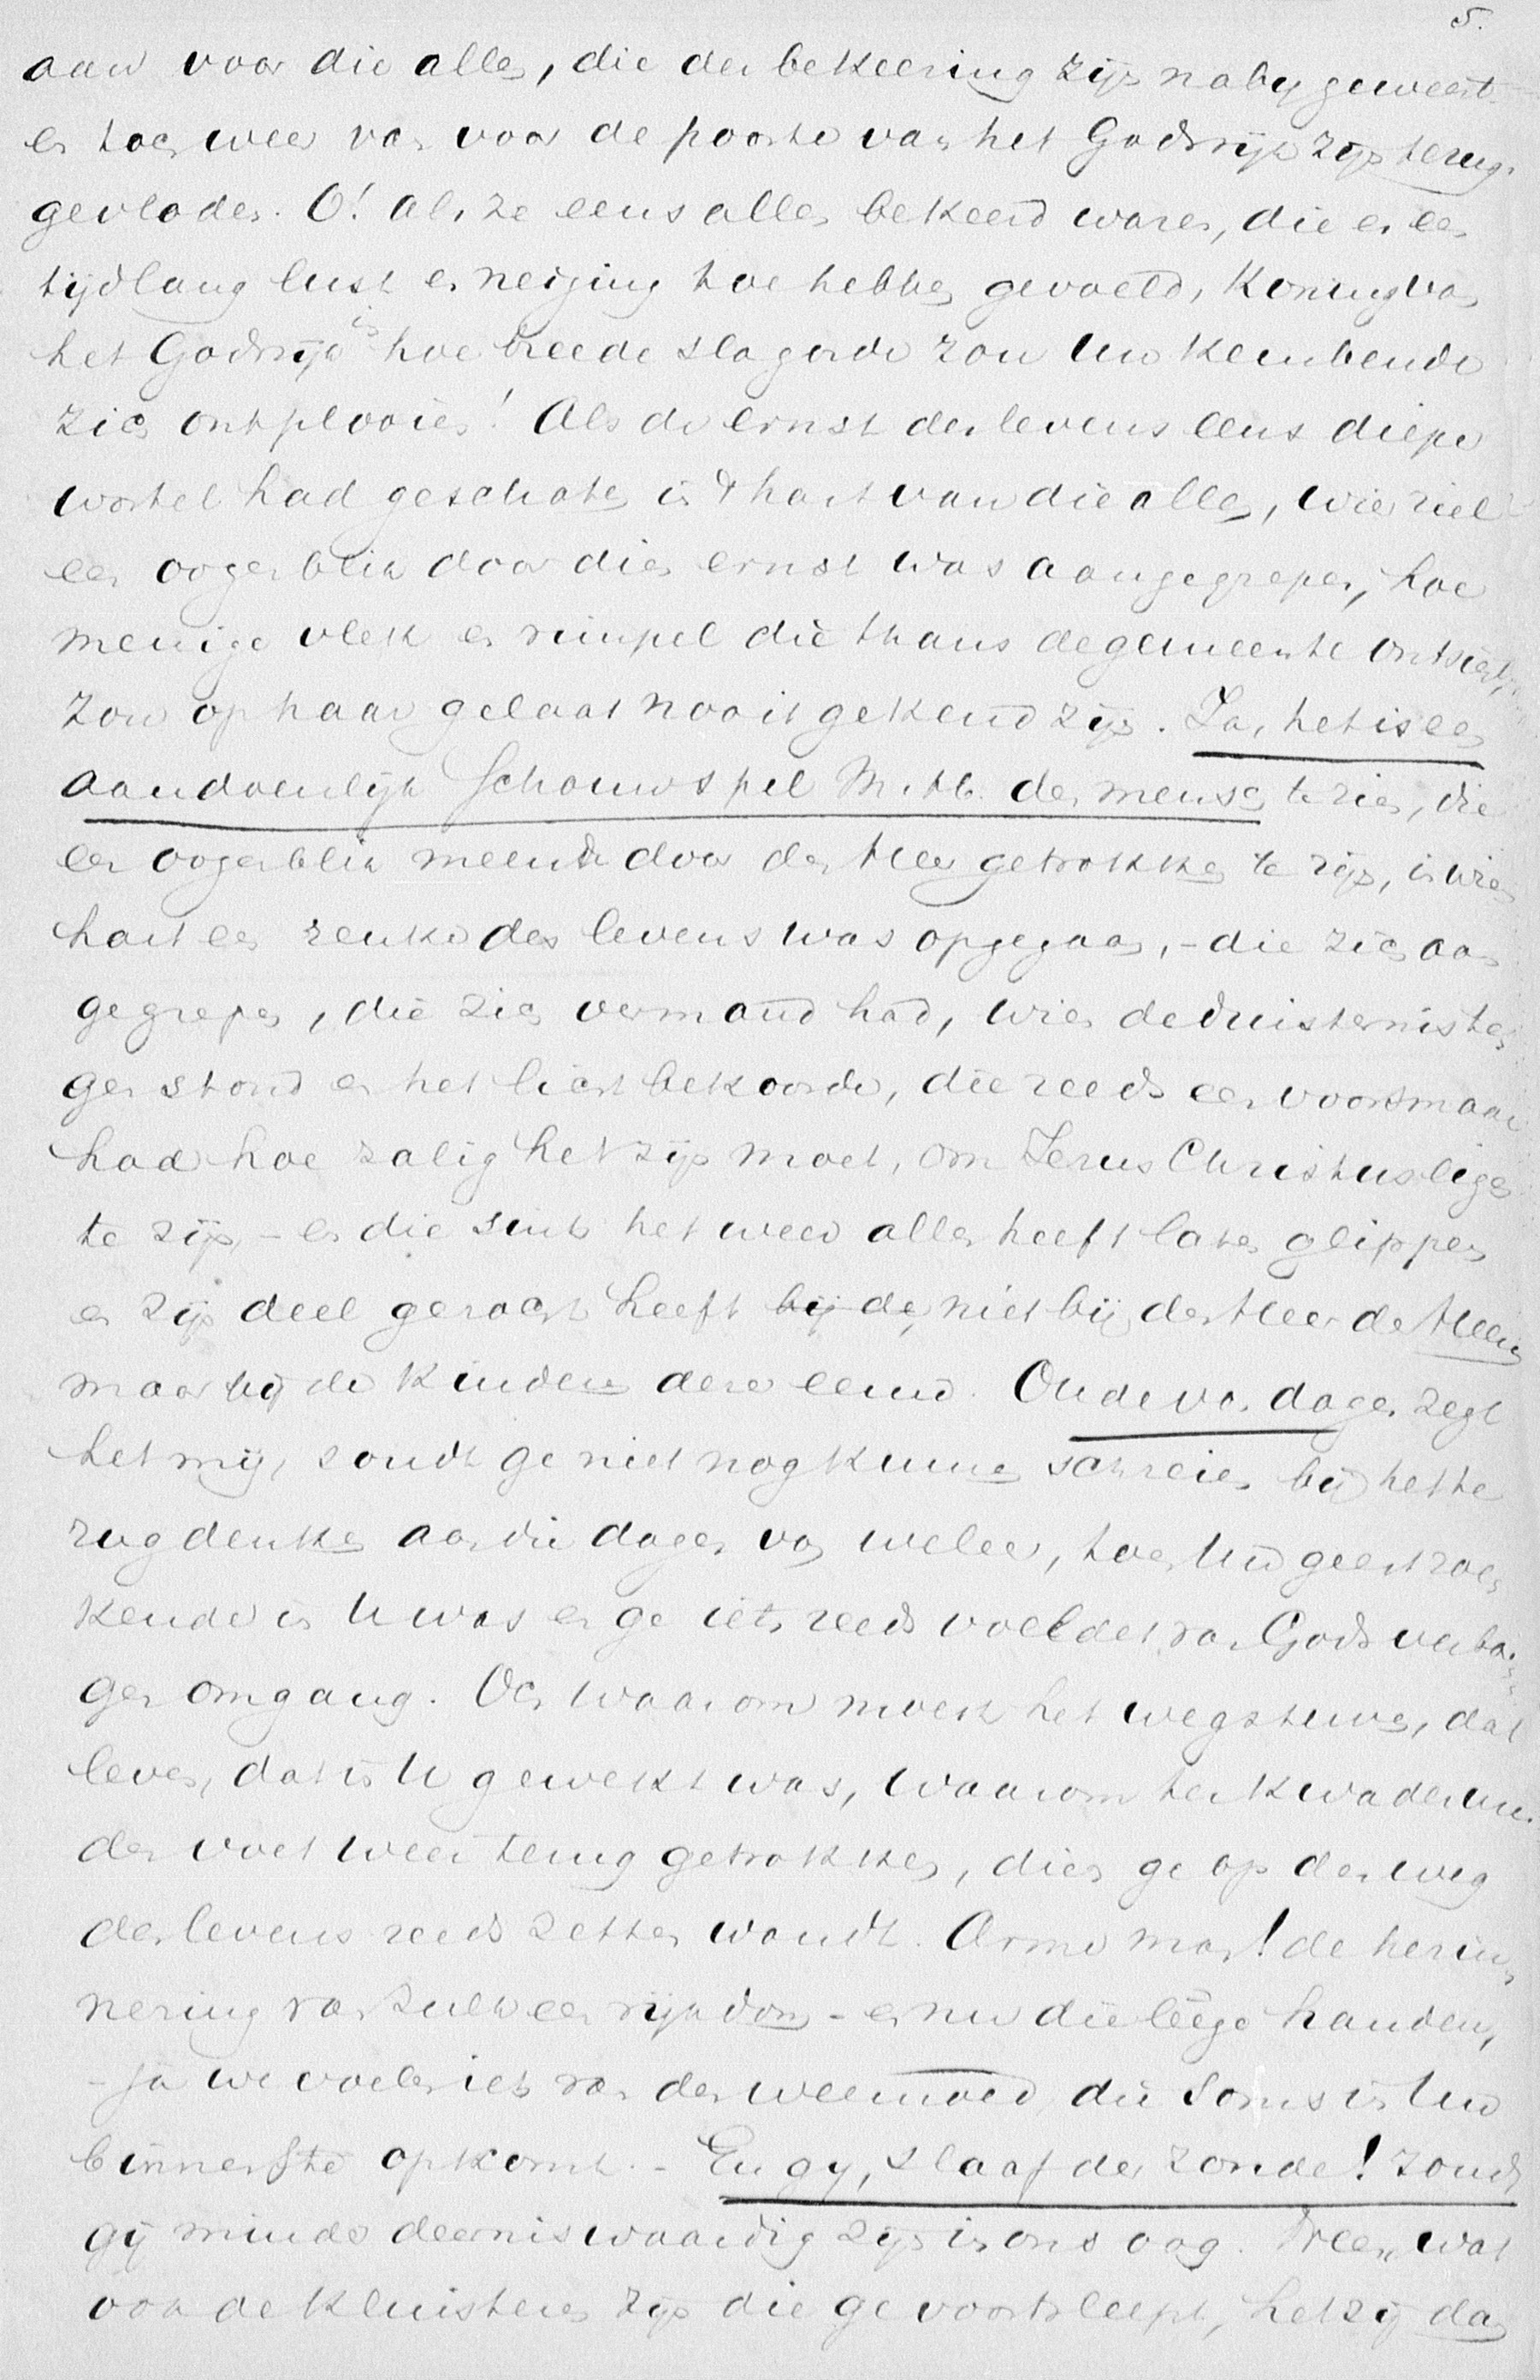 5.
aan voor die allen, die der bekeering zijn naby geweest
en toch weer van voor de poorte van het Godsrijk zijn terug-
gevloden. O! als ze eens allen bekeerd waren, die er een
tijdlang lust en neiging toe hebben gevoeld, Koning van
het Godsrijk in hoe breede slagorde zou Uw keurbende
zich ontplooien! Als de ernst des levens eens diepe
wortel had geschoten in 't hart van die allen, wier ziel
een oogenblik door dien ernst was aangegrepen, hoe
menige vlek en rimpel die thans de gemeente ontsiert,
zou op haar gelaat nooit gekend zijn. Ja, het is een
aandoenlijk schouwspel M. H. den mensch te zien, die
een oogenblik meende door den Heer getrokken te zijn, in wiens
hart een vonk des levens was opgegaan, - die zich aan
gegrepen, die zich vermand had, wien de duisternis te
gen stond en het licht bekoorde, die reeds een voorsmaak
had hoe zalig het zijn moet, om Jezus Christus eigen
te zijn, - en die sints het weer alles heeft laten glippen
en zijn deel gezocht heeft bij de niet bij den Heer de Heere
maar bij de kinderen dezer eeuw. Oude van dagen zegt
het mij, soudt ge niet nog kunnen schreien bij het te
rug denken aan die dagen van weleer, toen Uw geest zoe
kende in U was en ge iets reeds voeldet van Gods verbor-
gen omgang. Och waarom moest het wegsterven, dat
leven, dat in U gewekt was, waarom ter kwader ure
den voet weer terug getrokken, dien ge op den weg
des levens reeds zetten woudt. Arme man! de herin
nering van zulk een rijkdom - en nu die leege handen,
- ja we voelen iets van den weemoed die soms in Uw
binnenste opkomt. - En gy, slaaf der zonde! zoudt
gij minder deerniswaardig zijn in ons oog. Neen, wat
ook de kluisters zijn die ge voortsleept, het zij dan